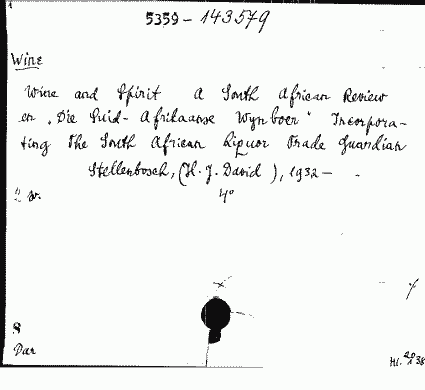 5359 - 143579
Wine
Wine and Spirit A South African Review
en "Die Suid-Afrikaanse Wynboer" Incorpora-
ting The South African Liquor Trade Guardian
Stellenbosch, (H. J. David ), 1932 -
4°
8
Dar